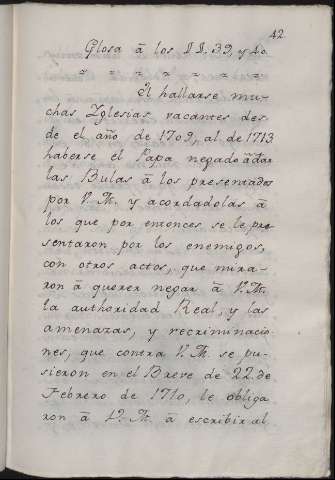 42
Glosa â los §§. 39, y 40.
El hallarse mu-
chas Iglesias vacantes des
de el año de 1709, al de 1713
haberse el Papa negado â dar
las Bulas â los presentados
por V. M. y acordadolas â
los que por entonces se le pre
sentaron por los enemigos,
con otros actos, que mira-
ron â querer negar â V. M.
la authoridad Real, y las
amenazas, y recriminacio
nes, que contra V. M. se pu-
sieron en el Breve de 22 de
Febrero de 1710, le obliga
ron â V. M. â escribir al